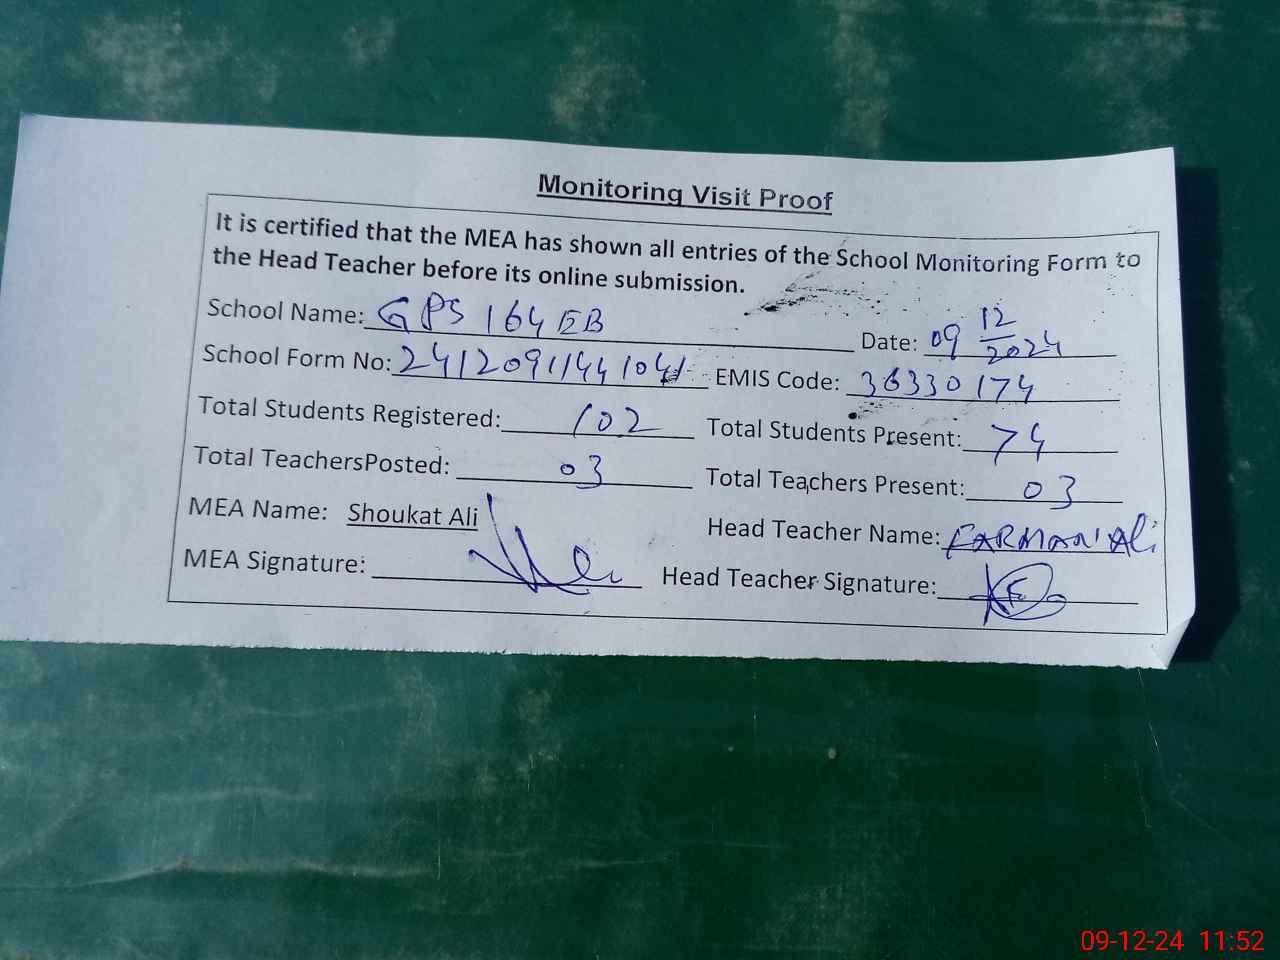 Monitoring Visit Proof
It is certified that the MEA has shown all entries of the School Monitoring Form to
the Head Teacher before its online submission.
School Name: GPS 164 EB Date: 09 12 2024
School Form No: EMIS Code: 36330174
Total Students Registered: 102 Total Students Present: 74
Total TeachersPosted: 03 Total Teachers Present: 03
MEA Name: Shoukat Ali Head Teacher Name: FARMAN Ali
MEA Signature: Head Teacher Signature:
09-12-24 11:52